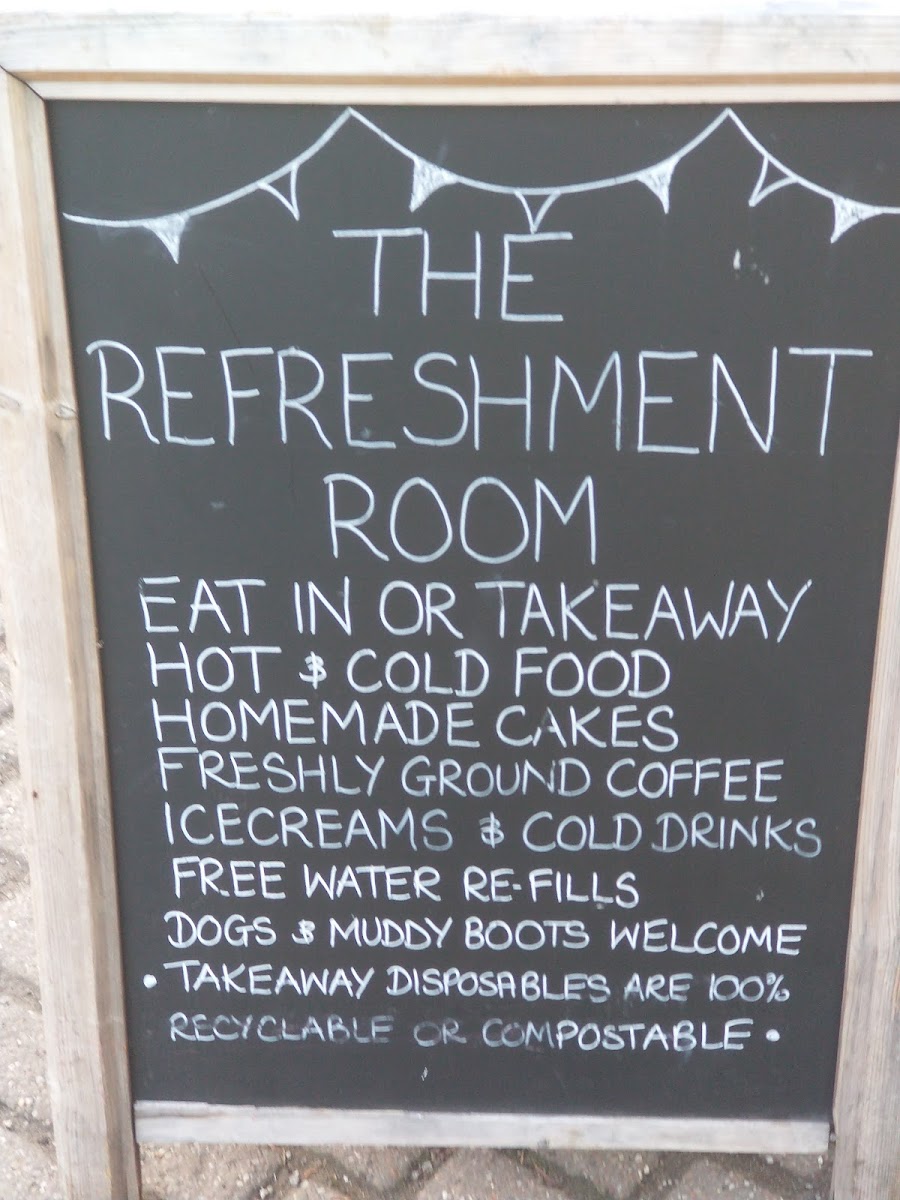 THE
REFRESHMENT
ROOM
EAT IN OR TAKEAWAY
HOT & COLD FOOD
HOMEMADE CAKES
FRESHLY GROUND COFFEE
ICECREAMS & COLD DRINKS
FREE WATER RE-FILLS
DOGS & MUDDY BOOTS WELCOME
• TAKEAWAY DISPOSABLES ARE 100%
RECYCLABLE OR COMPOSTABLE •